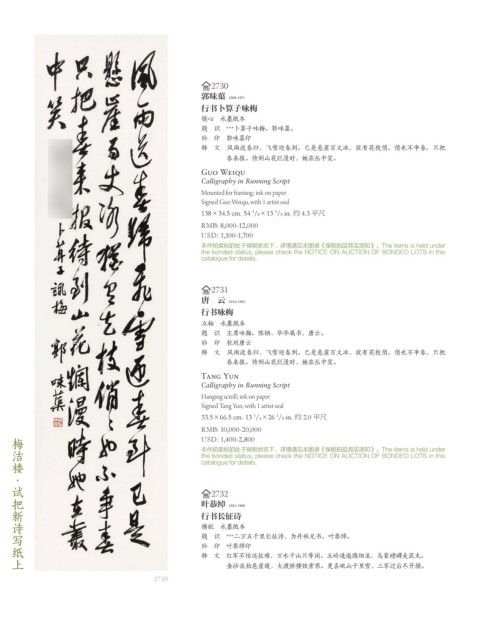 风雨送春归飞雪迎春到已是
悬崖百丈冰犹有花枝俏俏也不争春
只把春来报待到山花烂漫时她在丛
中笑
卜算子咏梅 郭味蕖
梅洁楼·试把新诗写纸上
2730
2730
郭味蕖 1908-1971
行书卜算子咏梅
镜心 水墨纸本
题 识 …卜算子咏梅。郭味蕖。
钤 印 郭味蕖印
释 文 风雨送春归,飞雪迎春到。已是悬崖百丈冰,犹有花枝俏。俏也不争春,只把
春来报。待到山花烂漫时,她在丛中笑。
GUO WEIQU
Calligraphy in Running Script
Mounted for framing; ink on paper
Signed Guo Weiqu, with 1 artist seal
138 × 34.5 cm. 54 3/8 × 13 5/8 in. 约 4.3 平尺
RMB: 8,000-12,000
USD: 1,100-1,700
本件拍卖标的处于保税状态下,详情请见本图录《保税拍品竞买须知》。The items is held under
the bonded status, please check the NOTICE ON AUCTION OF BONDED LOTS in this
catalogue for details.
2731
唐 云 1910-1993
行书咏梅
立轴 水墨纸本
题 识 主席咏梅。陈钢、华华藏书。唐云。
钤 印 杭州唐云
释 文 风雨送春归,飞雪迎春到。已是悬崖百丈冰,犹有花枝俏。俏也不争春,只把
春来报。待到山花烂漫时,她在丛中笑。
TANG YUN
Calligraphy in Running Script
Hanging scroll; ink on paper
Signed Tang Yun, with 1 artist seal
33.5 × 66.5 cm. 13 1/4 × 26 1/8 in. 约 2.0 平尺
RMB: 10,000-20,000
USD: 1,400-2,800
本件拍卖标的处于保税状态下,详情请见本图录《保税拍品竞买须知》。The items is held under
the bonded status, please check the NOTICE ON AUCTION OF BONDED LOTS in this
catalogue for details.
2732
叶恭绰 1881-1968
行书长征诗
横披 水墨纸本
题 识 …二万五千里长征诗,为丹林兄书。叶恭绰。
钤 印 叶恭绰印
释 文 红军不怕远征难,万水千山只等闲。五岭逶迤腾细浪,乌蒙磅礴走泥丸。
金沙浪拍悬崖暖,大渡桥横铁索寒。更喜岷山千里雪,三军过后尽开颜。